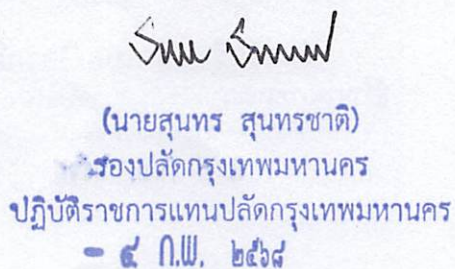 (นายสุนทร สุนทรชาติ)
รองปลัดกรุงเทพมหานคร
ปฏิบัติราชการแทนปลัดกรุงเทพมหานคร
- ๔ ก.พ. ๒๕๖๘